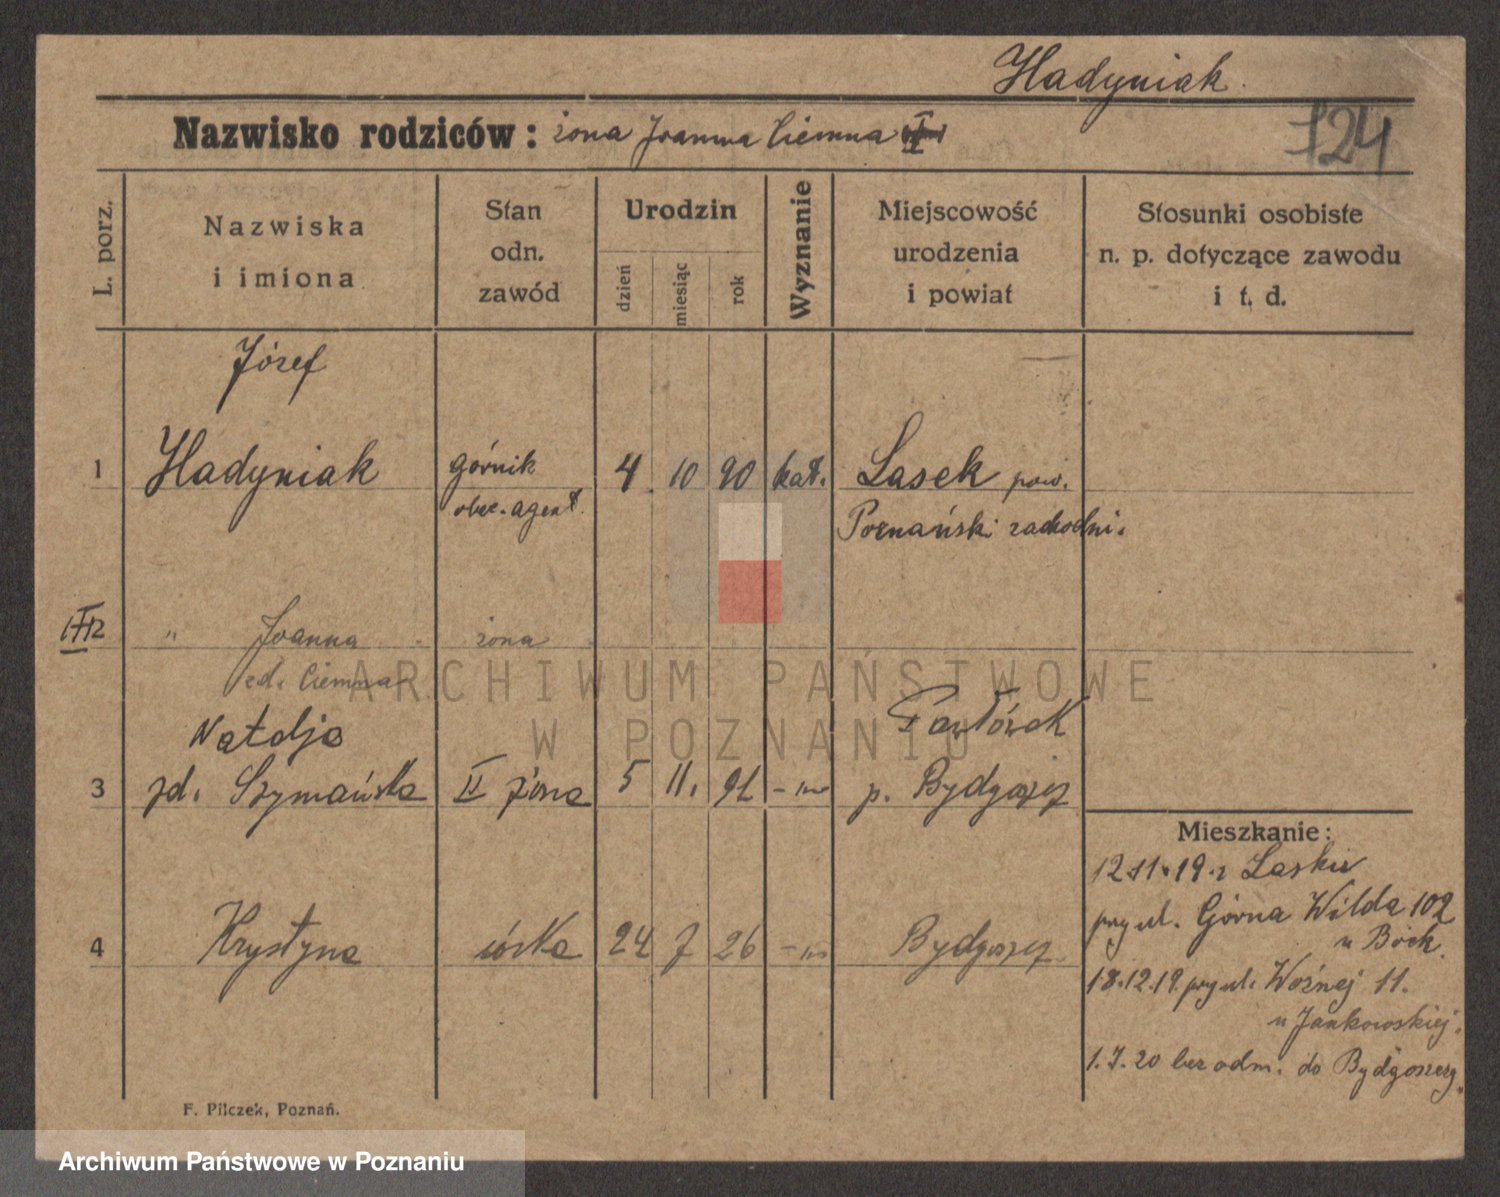 Hadyniak.
Nazwisko rodziców: żona Joanna Ciemna
124
L. porz.
Nazwiska
i imiona
Stan
odn.
zawód
Urodzin
dzień
miesiąc
rok
Wyznanie
Miejscowość
urodzenia
i powiat
Stosunki osobiste
n. p. dotyczące zawodu
i t. d.
Józef
1 Hadyniak górnik 4 10 90 kat. Lasek pow.
obec. agent. Poznański zachodni.
2 " Joanna żona
zd. Ciemna
Natalja Pawłówek
3 zd. Szymańska II żona 5 11. 91 p. Bydgoszcz
4 Krystyna córka 24 7 26 Bydgoszcz
Mieszkanie:
12.11.19. z Lasku
przy ul. Górna Wilda 102
u Bock.
18.12.19. przy ul. Woźnej 11.
u Jankowskiej.
1.7.20 bez odm. do Bydgoszczy.
F. Pilczek, Poznań.
ARCHIWUM PAŃSTWOWE
W POZNANIU
Archiwum Państwowe w Poznaniu